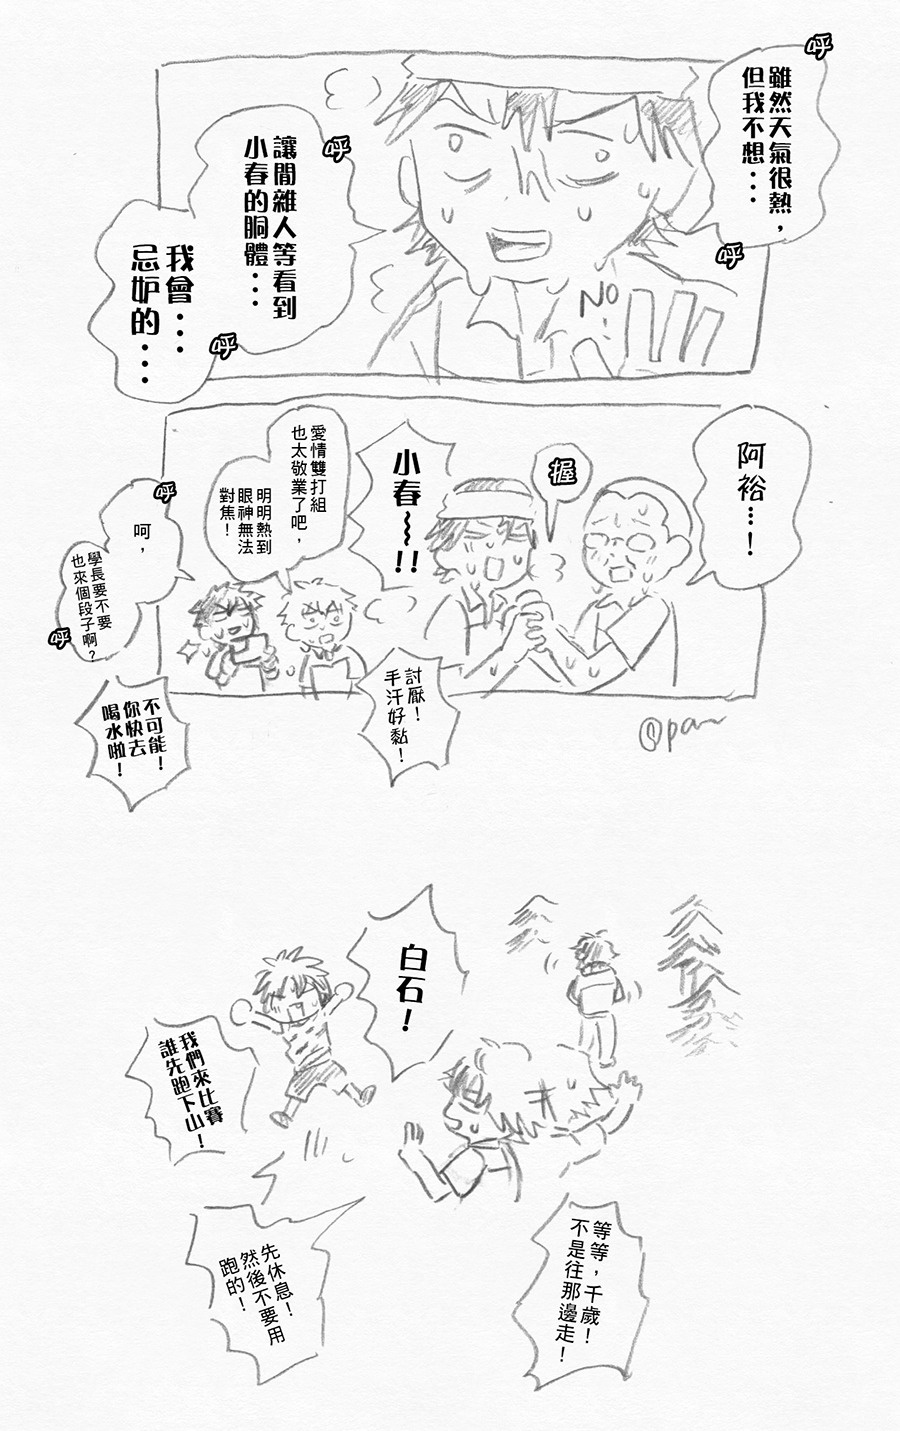 呼
雖然天氣很熱，
但我不想...
呼
呼
讓閒雜人等看到
小春的胴體...
呼
我會...
忌妒的...
NO
阿裕...！
握
小春~~!!
愛情雙打組
也太敬業了吧，
明明熱到
眼神無法
對焦！
呼
呵，
學長要不要
也來個段子啊？
呼
不可能！
你快去
喝水啦！
討厭！
手汗好黏！
@pan
白石！
我們來比賽
誰先跑下山！
先休息！
然後不要用
跑的！
等等，千歲！
不是往那邊走！